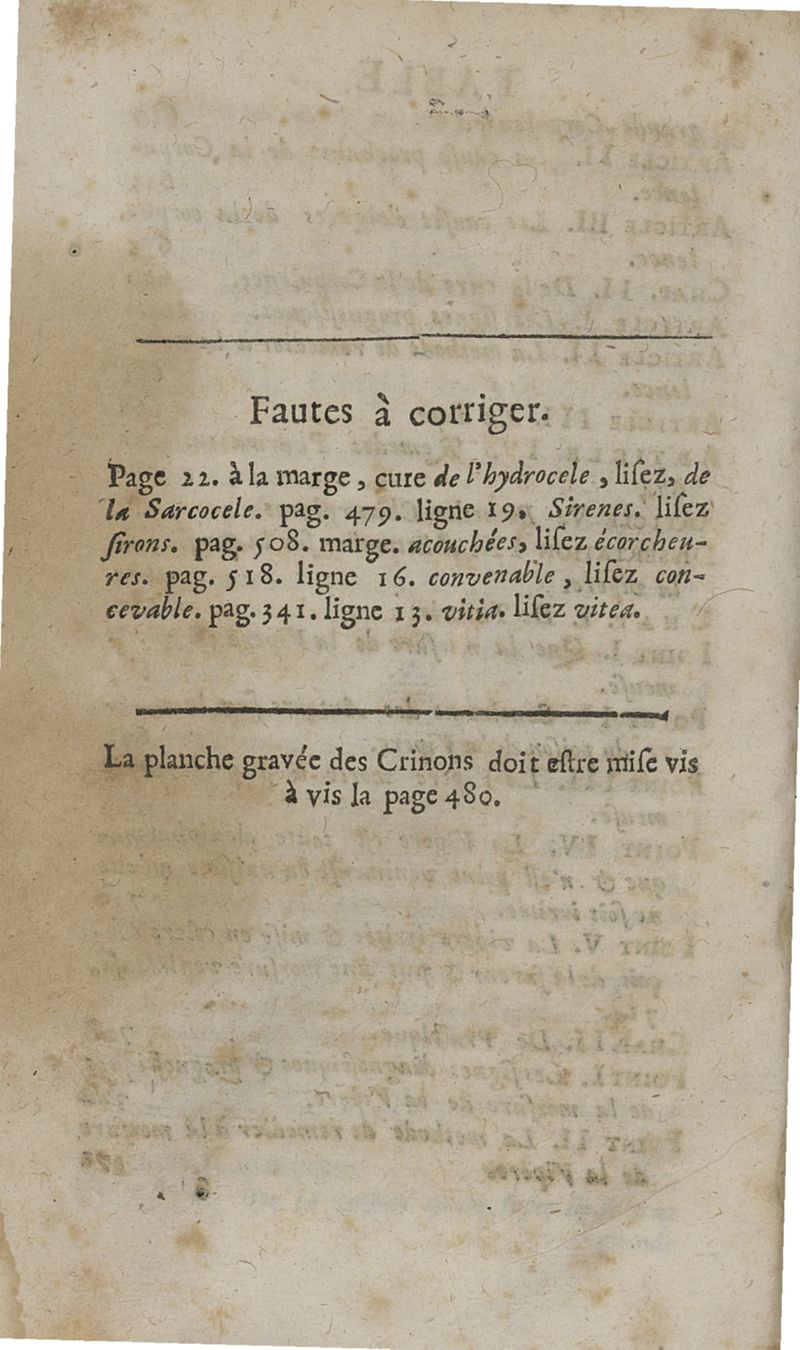 Fautes à corriger.
Page 22. à la marge, cure de l'hydrocele, liſez, de
la Sarcocele. pag. 479. ligne 19. Sirenes. liſez
ſirons. pag. 508. marge. acouchées, liſez écorcheu-
res. pag. 518. ligne 16. convenable, liſez con-
cevable. pag. 341. ligne 13. vitia. liſez vitea.
La planche gravée des Crinons doit eſtre miſe vis
à vis la page 480.